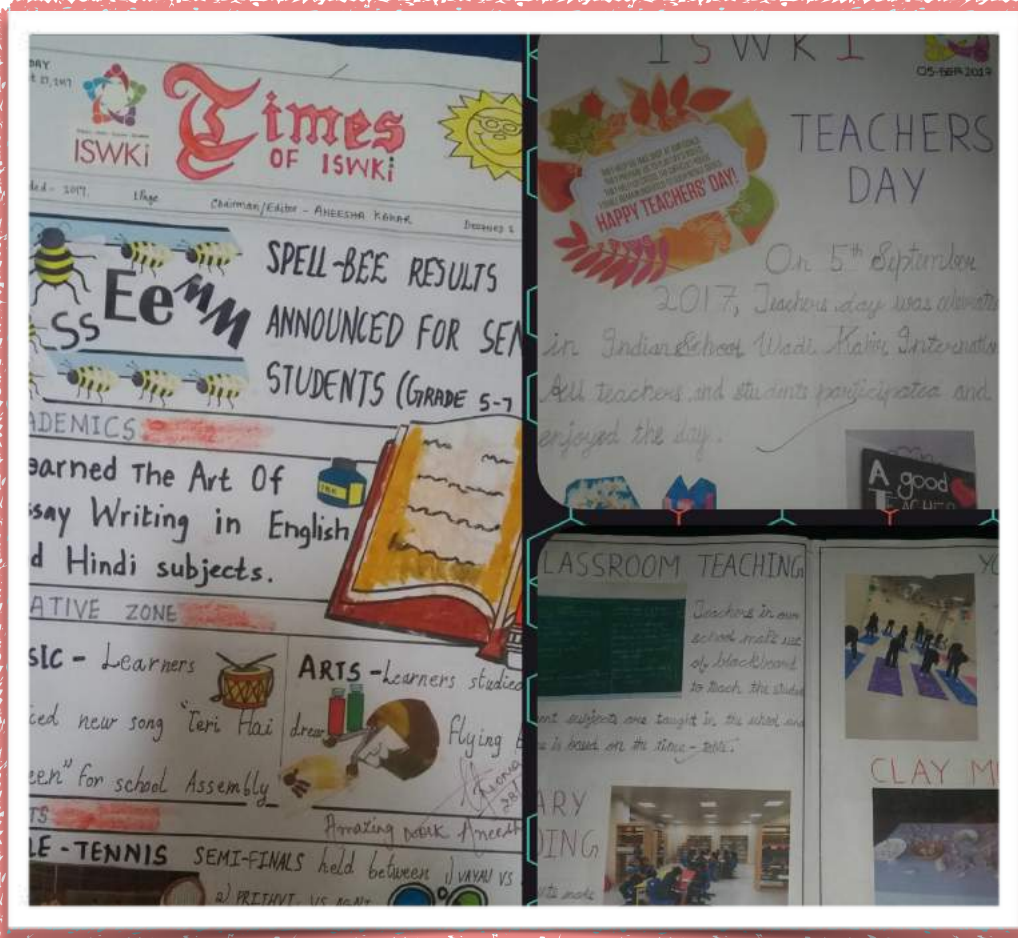 DAY
27, 2017
ISWKi
Times
OF ISWKi
2017.
1 Page
Chairman/Editor - ANEESHA KAKAR
Ss EeMM
SPELL-BEE RESULTS
ANNOUNCED FOR SEN
STUDENTS (GRADE 5-7
ADEMICS
earned The Art Of
ssay Writing in English
d Hindi subjects.
ATIVE ZONE
SIC - Learners
ced new song "Teri Hai
een" for school Assembly
ARTS - Learners studied
drear
Flying
Amazing work Aneesh
TS
LE - TENNIS SEMI-FINALS held between 1) VAYAU VS
2) PRITHVI VS AGNI
ISWKI
05-SEP-2017
HAPPY TEACHERS' DAY!
TEACHERS
DAY
On 5th September
2017, Teachers day was celebrate
in Indian School Wadi Kabir Internatio
All teachers and students participated and
enjoyed the day.
A good
TEACHER
LASSROOM TEACHING
Teachers in our
school make use
of blackboard
to teach the stude
ent subjects are taught in the school and
e is based on the time-table.
ARY
DING
nts make
YO
CLAY M